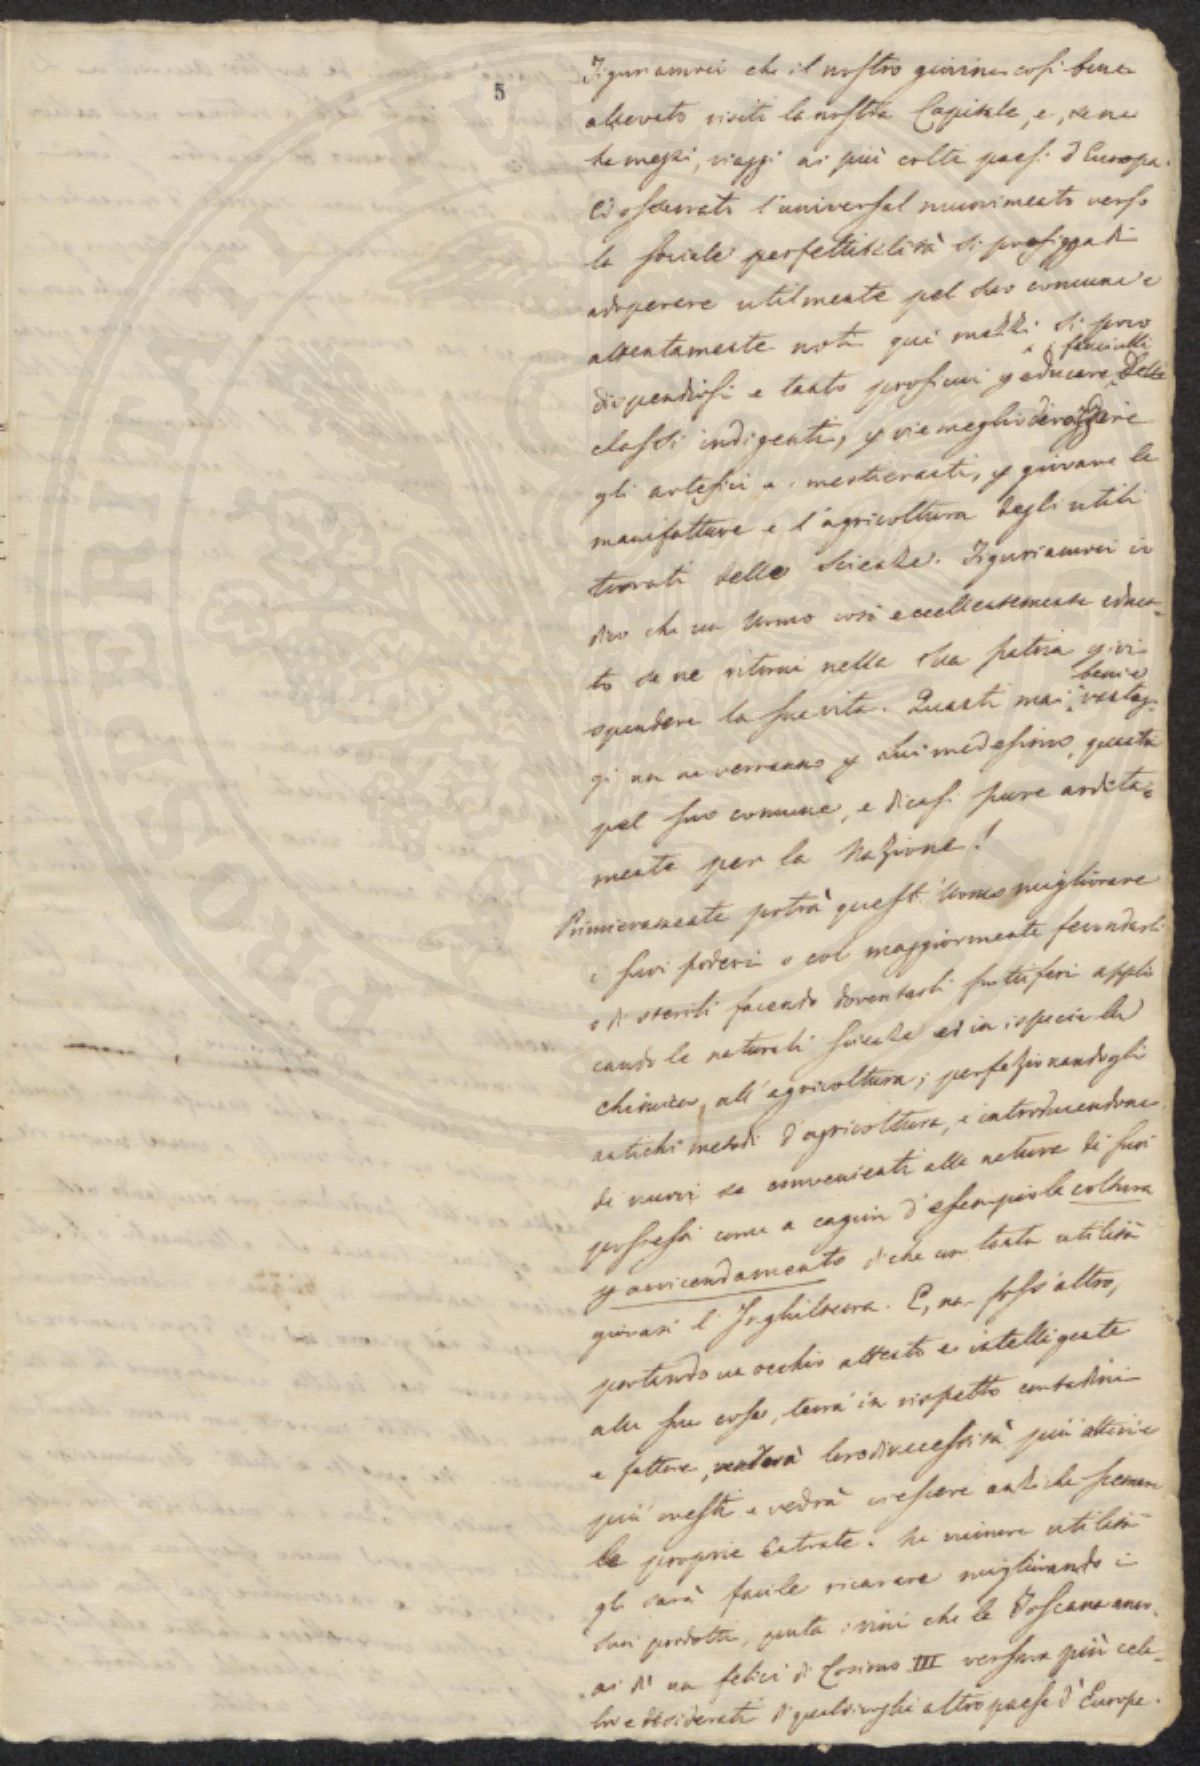 5
Figuriamoci che il nostro giovine così bene
allevato visiti la nostra Capitale, e, se ne
ha mezzi, viaggi ai più colti paesi d'Europa.
Ed osservato l'universal movimento verso
la sociale perfettibilità si prefigga di
adoperare utilmente pel suo comune e
attentamente noti quei mezzi sì poco
dispendiosi e tanto proficui p educare i fanciulli delle
classi indigenti, p vie meglio dirozzare
gli artefici e i mestieranti, p giovare le
manifatture e l'agricoltura degli utili
trovati delle scienze. Figuriamoci io
dico che un Uomo così eccellentemente educa-
to se ne ritorni nella sua patria p ivi
spendere la sua vita. Quanti mai beni e vantag-
gi non ne verranno p lui medesimo, quanti
pel suo comune, e dicasi pure ardita-
mente per la Nazione!
Primieramente potrà quest'Uomo migliorare
i suoi poderi o col maggiormente fecondarli
o di sterili facendo doventarli fruttiferi appli
cando le naturali scienze ed in ispecie la
chimica, all'agricoltura; perfezionando gli
antichi metodi d'agricoltura, e introducendone
di nuovi se convenienti alla natura di suoi
possessi come a cagion d'esempio la coltura
p avvicendamento di che con tanta utilità
giovasi l'Inghilterra. E, non foss'altro,
portando un occhio attento e intelligente
alle sue cose, terrà in rispetto contadini
e fattore, renderà loro di necessità più attivi e
più onesti e vedrà crescere anzi che scemare
le proprie Entrate. Nè minore utilità
gli sarà facile ricavare migliorando i
suoi prodotti, quali i vini che la Toscana
ai dì non felici di Cosimo III versava più cele-
bri e desiderati di qualsivoglia altro paese d'Europa.
PROSPERITATI PUBLICAE